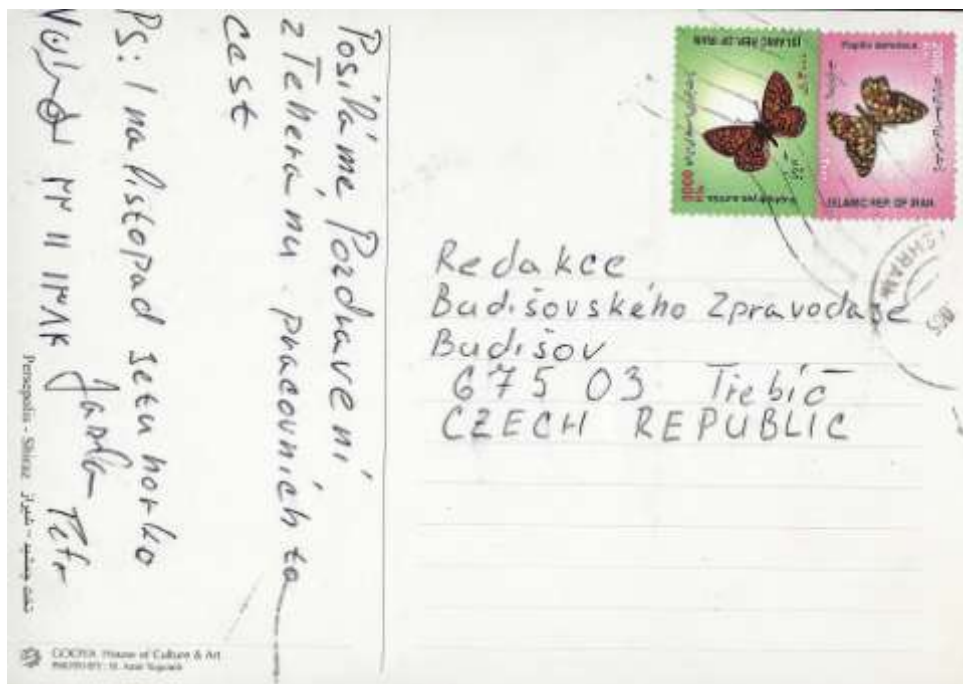 Posíláme Pozdravení
z Teheránu pracovních to
cest
PS: I na listopad je tu horko
۲۳ ۱۱ ۱۳۸۷
Petr
Persepolis - Shiraz تخت جمشید - شیراز
GOOYA House of Culture & Art
ISLAMIC REP. OF IRAN
ISLAMIC REP. OF IRAN
Redakce
Budišovského Zpravodaje
Budišov
675 03 Třebíč
CZECH REPUBLIC